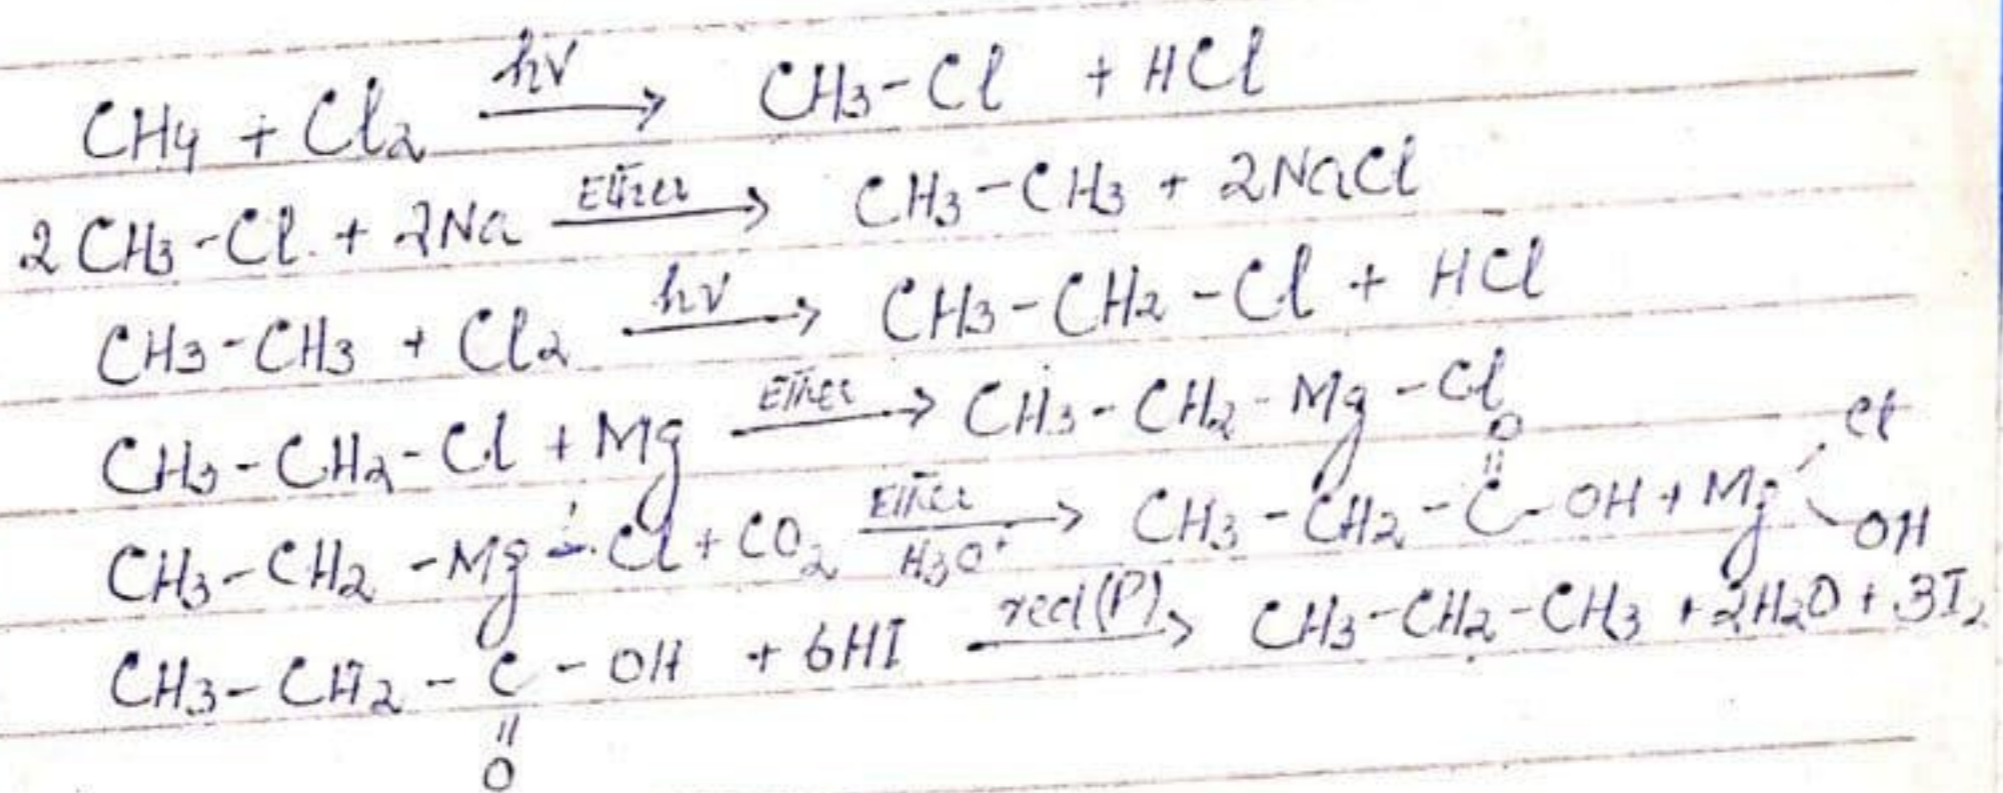 CH4 + Cl2 —hv→ CH3-Cl + HCl
2CH3-Cl + 2Na —Ether→ CH3-CH3 + 2NaCl
CH3-CH3 + Cl2 —hv→ CH3-CH2-Cl + HCl
CH3-CH2-Cl + Mg —Ether→ CH3-CH2-Mg-Cl
CH3-CH2-Mg-Cl + CO2 —Ether/H3O+→ CH3-CH2-C(=O)-OH + Mg(Cl)(OH)
CH3-CH2-C(=O)-OH + 6HI —red(P)→ CH3-CH2-CH3 + 2H2O + 3I2